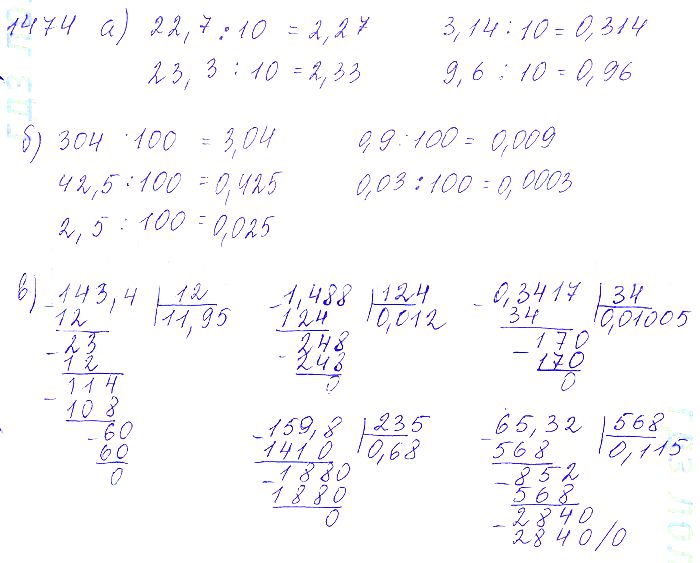 1474 а) 22,7 : 10 = 2,27 3,14 : 10 = 0,314
23,3 : 10 = 2,33 9,6 : 10 = 0,96
б) 304 : 100 = 3,04 0,9 : 100 = 0,009
42,5 : 100 = 0,425 0,03 : 100 = 0,0003
2,5 : 100 = 0,025
в) -143,4 | 12 -1,488 | 124 -0,3417 | 34
12 | 11,95 124 | 0,012 34 | 0,01005
-23 -248 -170
12 248 170
114 0 0
-108
-60 -159,8 | 235 -65,32 | 568
60 1410 | 0,68 568 | 0,115
0 -1880 -852
1880 568
0 -2840
2840/0